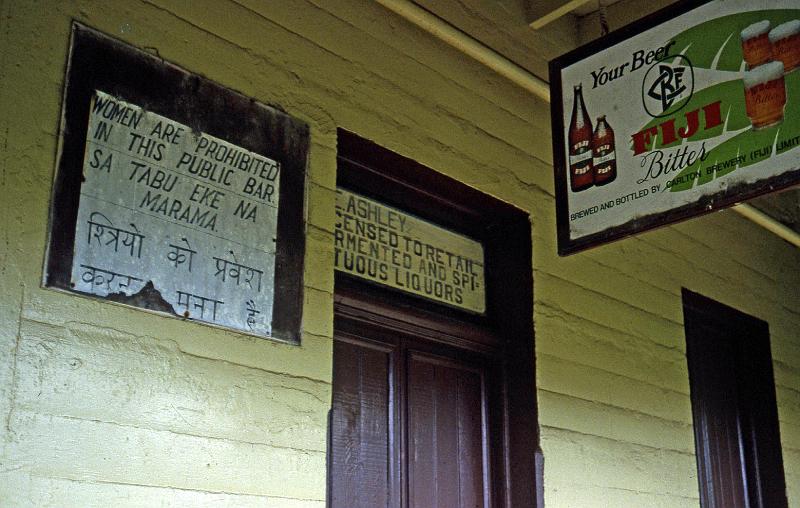 WOMEN ARE PROHIBITED
IN THIS PUBLIC BAR.
SA TABU EKE NA
MARAMA.
श्त्रियो को प्रवेश
मना है
ASHLEY
ENSED TO RETAIL
RMENTED AND SPI-
TUOUS LIQUORS
Your Beer
FIJI
Bitter
BREWED AND BOTTLED BY CARLTON BREWERY (FIJI) LIMIT